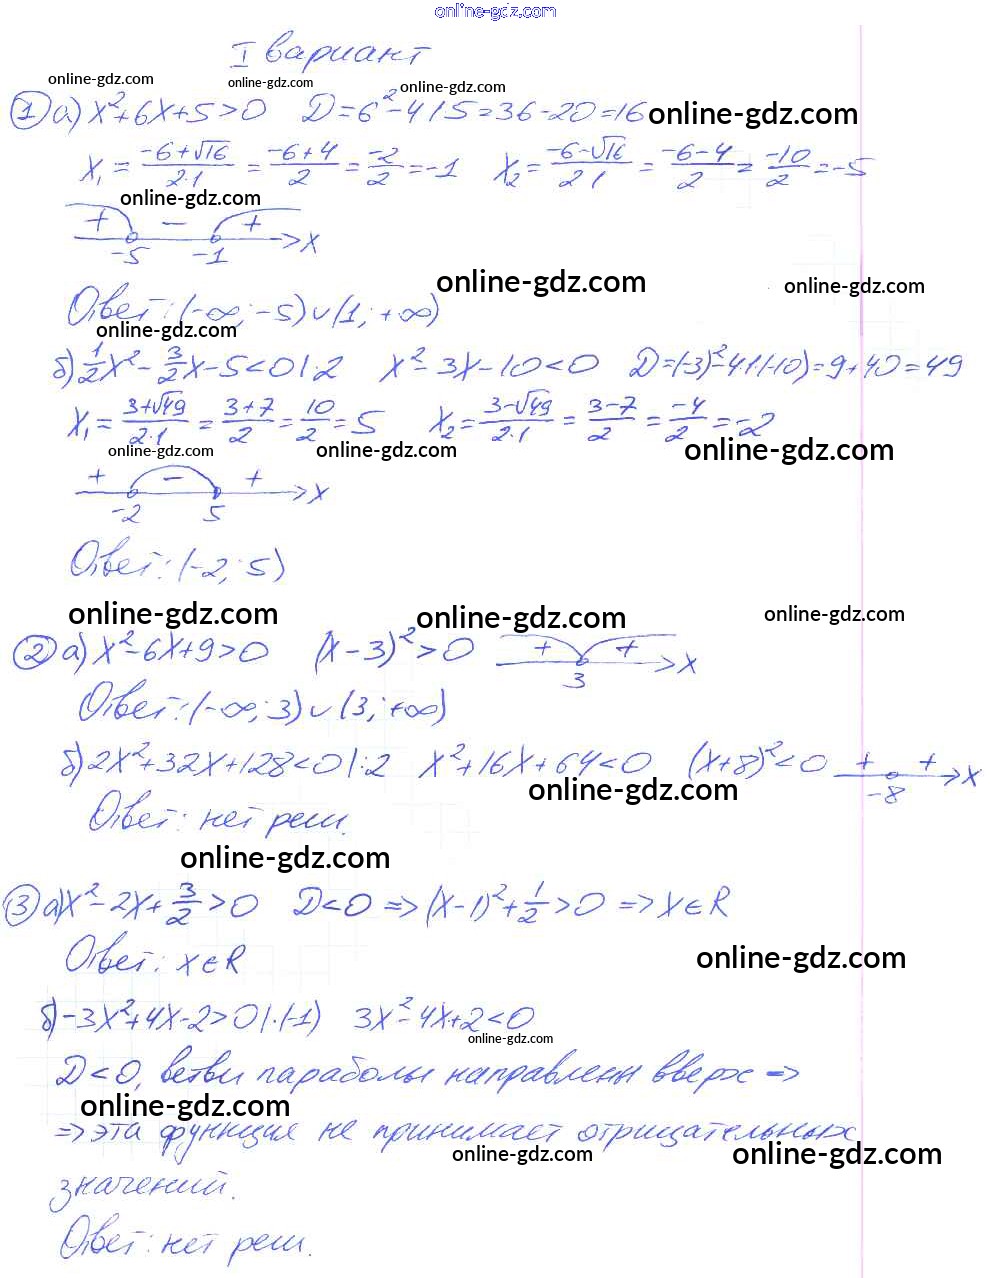 online-gdz.com
I вариант
online-gdz.com online-gdz.com online-gdz.com
① а) x²+6x+5>0 D=6²-4·1·5=36-20=16 online-gdz.com
x₁ = (-6+√16)/(2·1) = (-6+4)/2 = -2/2 = -1 x₂ = (-6-√16)/(2·1) = (-6-4)/2 = -10/2 = -5
online-gdz.com
+ - +
-5 -1 x
online-gdz.com online-gdz.com
Ответ: (-∞; -5)∪(1; +∞)
online-gdz.com
б) 1/2x² - 3/2x - 5 < 0 |·2 x²-3x-10<0 D=(-3)²-4·1·(-10)=9+40=49
x₁ = (3+√49)/(2·1) = (3+7)/2 = 10/2 = 5 x₂ = (3-√49)/(2·1) = (3-7)/2 = -4/2 = -2
online-gdz.com online-gdz.com online-gdz.com
+ - +
-2 5 x
Ответ: (-2; 5)
online-gdz.com online-gdz.com online-gdz.com
② а) x²-6x+9>0 (x-3)²>0 + + 3 x
Ответ: (-∞; 3)∪(3; +∞)
б) 2x²+32x+128<0 |:2 x²+16x+64<0 (x+8)²<0 + + -8 x
online-gdz.com
Ответ: нет реш.
online-gdz.com
③ а) x²-2x+3/2>0 D<0 => (x-1)²+1/2>0 => x∈R
Ответ: x∈R
online-gdz.com
б) -3x²+4x-2>0 |·(-1) 3x²-4x+2<0
online-gdz.com
D<0, ветви параболы направлены вверх =>
online-gdz.com
=> эта функция не принимает отрицательных
online-gdz.com online-gdz.com
значений.
Ответ: нет реш.